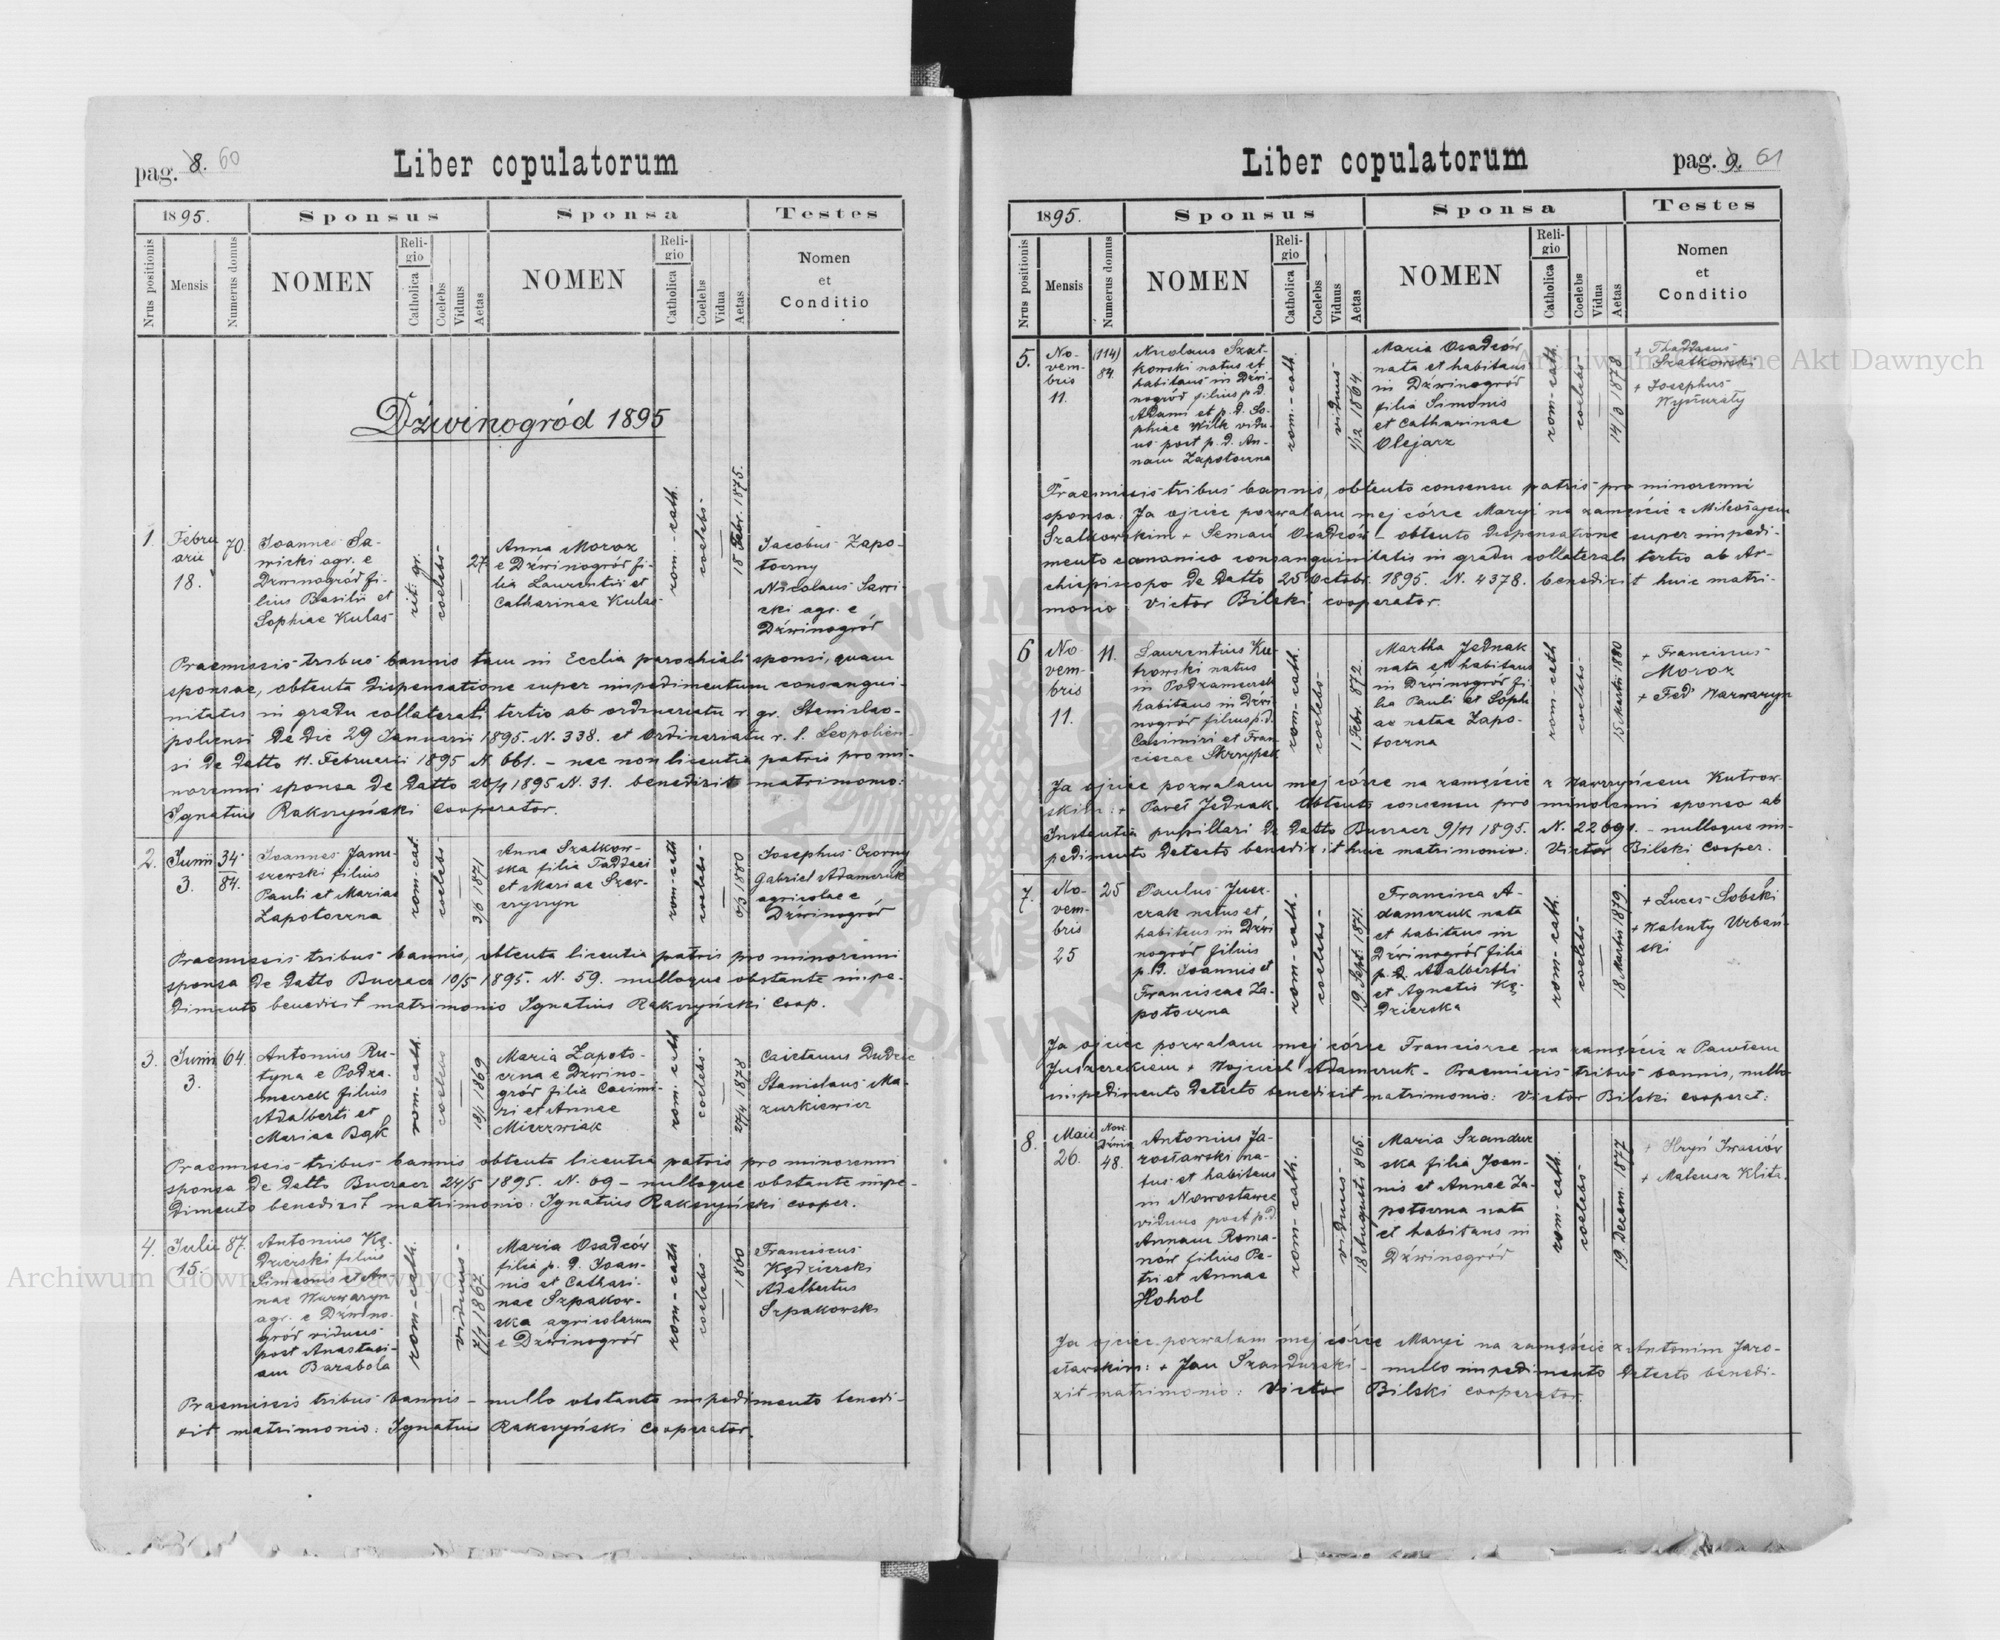 pag. 8. 60
Liber copulatorum
1895.
Sponsus
Sponsa
Testes
Nrus positionis
Mensis
Numerus domus
NOMEN
Religio
Catholica
Coelebs
Viduus
Aetas
NOMEN
Religio
Catholica
Coelebs
Vidua
Aetas
Nomen
et
Conditio
Dźwinogród 1895
1.
Febru
arii
18.
70.
Joannes Sa-
wicki agr. e
Dźwinogród fi-
lius Basilii et
Sophiae Kulas
rit. gr.
coelebs
27
Anna Moroz
e Dźwinogród fi-
lia Laurentii et
Catharinae Kulas
rom.-cath.
coelebs
18 Febr. 1875.
Jacobus Zapo-
toczny
Nicolaus Sawi-
cki agr. e
Dźwinogród
Praemissis tribus bannis tam in Ecclia parochiali sponsi, quam
sponsae, obtenta dispensatione super impedimentum consangui-
nitatis in gradu collaterali tertio ab ordinariatu r. gr. Stanislao-
poliensi de die 29 Januarii 1895. N. 338. et Ordinariatu r. l. Leopolien-
si de datto 11. Februarii 1895 N. 661. – nec non licentia patris pro mi-
norenni sponsa de datto 20/1 1895 N. 31. benedixit matrimonio:
Ignatius Rakszyński cooperator.
2.
Junii
3.
34
84.
Joannes Jani-
szewski filius
Pauli et Mariae
Zapotoczna
rom-cat.
coelebs
3/6 1871
Anna Szatkow-
ska filia Taddaei
et Mariae Szew-
czyszyn
rom-cath
coelebs
6/3 1880
Josephus Czorny
Gabriel Adamczuk
agricolae e
Dźwinogród
Praemissis tribus bannis, obtenta licentia patris pro minorenni
sponsa de datto Buczacz 10/5 1895. N. 59. nulloque obstante impe-
dimento benedixit matrimonio Ignatius Rakszyński coop.
3.
Junii
3.
64.
Antonius Ru-
tyna e Podza-
meczek filius
Adalberti et
Mariae Bąk
rom-cath.
coelebs
18/1 1869
Maria Zapoto-
czna e Dźwino-
gród filia Casimi-
ri et Annae
Mierzwiak
rom-cath
coelebs
27/4 1878
Caietanus Dudzic
Stanislaus Ma-
zurkiewicz
Praemissis tribus bannis obtenta licentia patris pro minorenni
sponsa de datto Buczacz 24/5 1895. N. 69 – nulloque obstante impe-
dimento benedixit matrimonio: Ignatius Rakszyński cooper.
4.
Julii
15.
87.
Antonius Kę-
dzierski filius
Simeonis et An-
nae Warwaryn
agr. e Dźwino-
gród viduus
post Anastasi-
am Barabola
rom-cath.
viduus
7/7 1867
Maria Osadców
filia p. d. Joan-
nis et Cathari-
nae Szpakow-
ska agricolarum
e Dźwinogród
rom-cath
coelebs
1860
Franciscus
Kędzierski
Adalbertus
Szpakowski
Praemissis tribus bannis – nullo obstante impedimento benedi-
xit matrimonio: Ignatius Rakszyński Cooperator.
Liber copulatorum
pag. 9. 61
1895.
Sponsus
Sponsa
Testes
Nrus positionis
Mensis
Numerus domus
NOMEN
Religio
Catholica
Coelebs
Viduus
Aetas
NOMEN
Religio
Catholica
Coelebs
Vidua
Aetas
Nomen
et
Conditio
5.
No-
vem-
bris
11.
(114)
84.
Nicolaus Szat-
kowski natus et
habitans in Dźwi-
nogród filius p. d.
Adami et p. d. So-
phiae Wilk vidu-
us post p. d. An-
nam Zapotoczna
rom.-cath.
viduus
1/12 1864.
Maria Osadców
nata et habitans
in Dźwinogród
filia Simonis
et Catharinae
Olejarz
rom-cath.
coelebs
14/3 1878
+ Thaddaeus
Szatkowski
+ Josephus
Praemissis tribus bannis, obtento consensu patris pro minorenni
sponsa: Ja ojciec pozwalam mej córce Maryi na zamęście z Mikołajem
Szatkowskim + Semań Osadców – obtenta dispensatione super impedi-
mento canonico consanguinitatis in gradu collaterali tertio ab Ar-
chiepiscopo de datto 25 Octobr. 1895. N. 4378. benedixit huic matri-
monio Victor Bilski cooperator.
6
No-
vem-
bris
11.
11.
Laurentius Ku-
trowski natus
in Podzameczek
habitans in Dźwi-
nogród filius p. d.
Casimiri et Fran-
ciscae Skrzypek
rom-cath.
coelebs
1 Febr. 872.
Martha Jednak
nata et habitans
in Dźwinogród fi-
lia Pauli et Soph-
ae natae Zapo-
toczna
rom-cath
coelebs
15 Martii 1880
+ Franciscus
Moroz
+ Fedⁱ Warwaryn
Ja ojciec pozwalam mej córce na zamęście z Wawrzyńcem Kutrow-
skim: + Paweł Jednak. Obtento consensu pro minorenni sponso ab
Instantia pupillari de datto Buczacz 9/11 1895. N. 22691. – nulloque im-
pedimento detecto benedixit huic matrimonio: Victor Bilski Cooper.
7.
No-
vem-
bris
25
25
Paulus Jusz-
czak natus et
habitans in Dźwi
nogród filius
p. d. Joannis et
Franciscae Za-
potoczna
rom-cath.
coelebs
19. Sept. 1871.
Francisca A-
damczuk nata
et habitans in
Dźwinogród filia
p. d. Adalberthi
et Agnetis Kę-
dzierska
rom-cath.
coelebs
18 Martii 1879.
+ Lucas Sobski
+ Walenty Urbań-
ski
Ja ojciec pozwalam mej córce Francisce na zamęście z Pawłem
Juszczakiem + Wojciech Adamczuk – Praemissis tribus bannis, nullo
impedimento detecto benedixit matrimonio: Victor Bilski cooperat:
8.
Maii
26.
48.
Antonius Ja-
rosławski na-
tus et habitans
in Nowostawce
viduus post p. d.
Annam Roma-
nów filius Pe-
tri et Annae
Hohol
rom-cath.
viduus
18 Augusti 865.
Maria Szandur
ska filia Joan-
nis et Annae Za-
potoczna nata
et habitans in
Dźwinogród
rom-cath.
coelebs
19. Decem. 1877
+ Hryń Iwasiów
+ Mateusz Klita.
Ja ojciec pozwalam mej córce Maryi na zamęście z Antonim Jaro-
sławskim: + Jan Szandurski – nullo impedimento detecto benedi-
xit matrimonio: Victor Bilski cooperator.
Archiwum Główne Akt Dawnych
Archiwum Główne Akt Dawnych